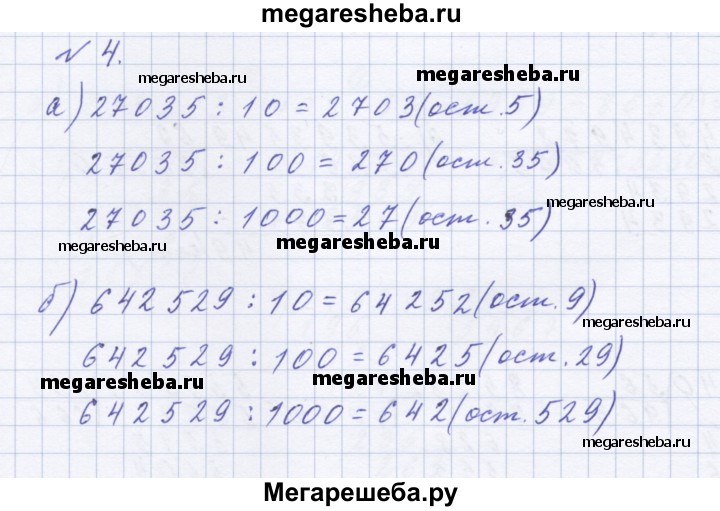 megaresheba.ru
№ 4.
megaresheba.ru
megaresheba.ru
а) 27035 : 10 = 2703 (ост. 5)
27035 : 100 = 270 (ост. 35)
27035 : 1000 = 27 (ост. 35)
megaresheba.ru
megaresheba.ru
megaresheba.ru
б) 642529 : 10 = 64252 (ост. 9)
megaresheba.ru
642529 : 100 = 6425 (ост. 29)
megaresheba.ru
megaresheba.ru
642529 : 1000 = 642 (ост. 529)
megaresheba.ru
Мегарешеба.ру